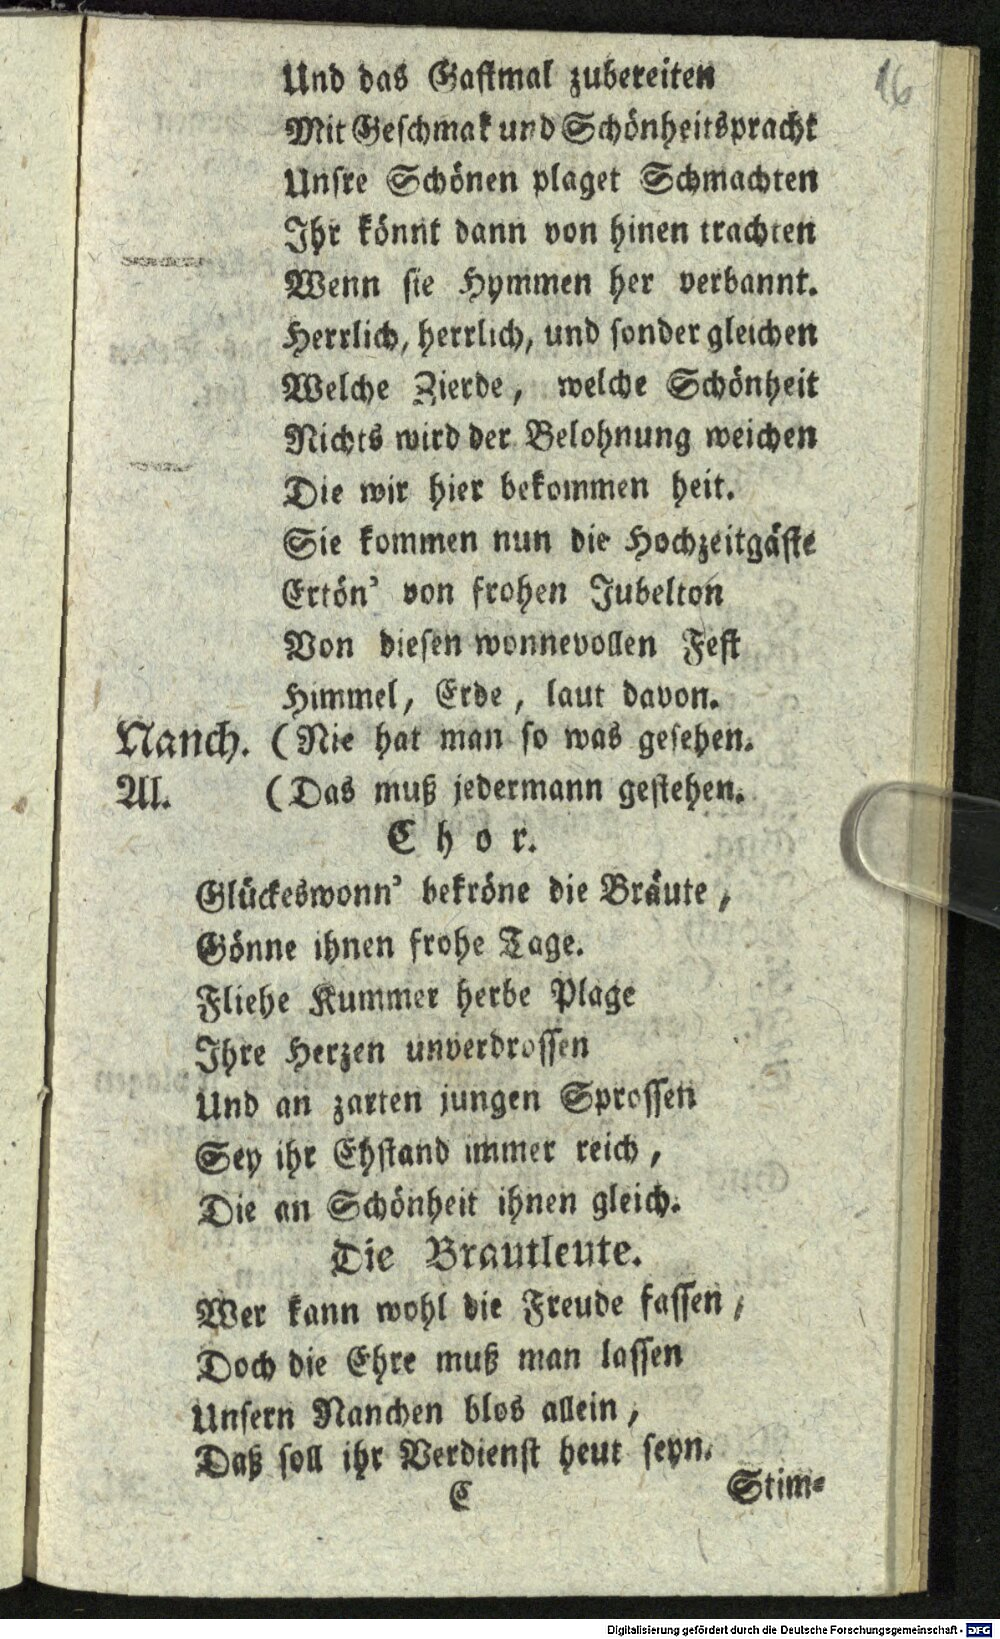 16
Und das Gastmal zubereiten
Mit Geschmak und Schönheitspracht
Unsre Schönen plaget Schmachten
Ihr könnt dann von hinen trachten
Wenn sie Hymmen her verbannt.
Herrlich, herrlich, und sonder gleichen
Welche Zierde, welche Schönheit
Nichts wird der Belohnung weichen
Die wir hier bekommen heit.
Sie kommen nun die Hochzeitgäste
Ertön' von frohen Jubelton
Von diesen wonnevollen Fest
Himmel, Erde, laut davon.
Nanch. (Nie hat man so was gesehen.
Al. (Das muß jedermann gestehen.
Chor.
Glückeswonn' bekröne die Bräute,
Gönne ihnen frohe Tage.
Fliehe Kummer herbe Plage
Ihre Herzen unverdrossen
Und an zarten jungen Sprossen
Sey ihr Ehstand immer reich,
Die an Schönheit ihnen gleich.
Die Brautleute.
Wer kann wohl die Freude fassen,
Doch die Ehre muß man lassen
Unsern Nanchen blos allein,
Daß soll ihr Verdienst heut seyn.
C Stim-
Digitalisierung gefördert durch die Deutsche Forschungsgemeinschaft - DFG